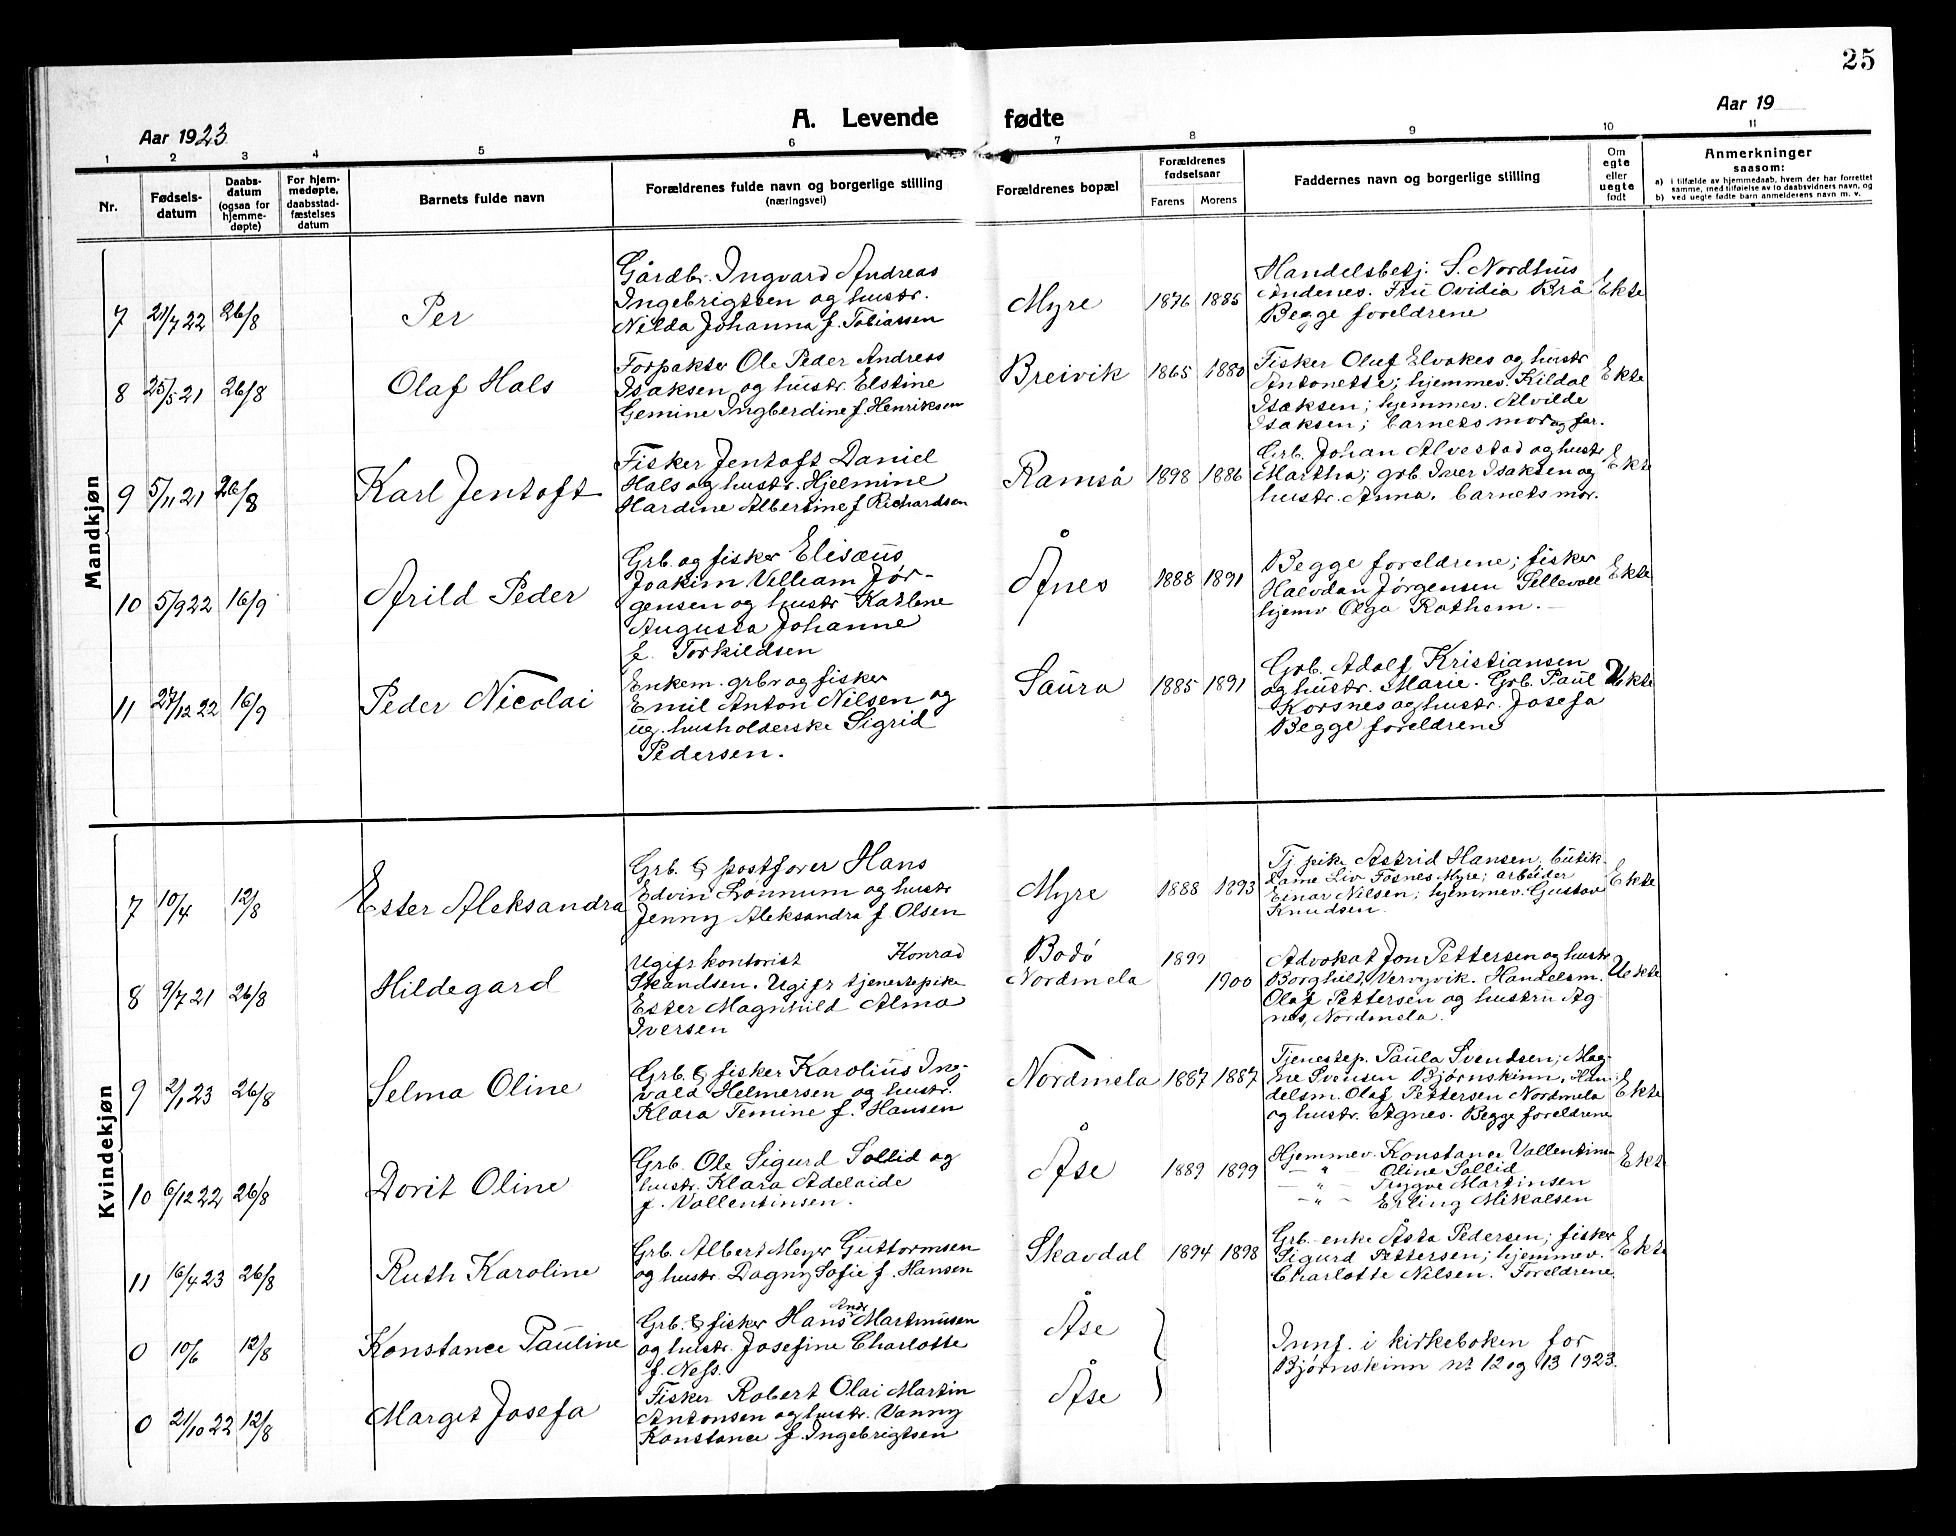 25
A. Levende fødte
Aar 1923
Aar 19
1 2 3 4 5 6 7 8 9 10 11
Nr.
Fødsels-
datum
Daabs-
datum
(ogsaa for
hjemme-
døpte)
For hjem-
medøpte,
daabsstad-
fæstelses
datum
Barnets fulde navn
Forældrenes fulde navn og borgerlige stilling
(næringsvei)
Forældrenes bopæl
Forældrenes
fødselsaar
Farens Morens
Faddernes navn og borgerlige stilling
Om
egte
eller
uegte
født
Anmerkninger
saasom:
a) i tilfælde av hjemmedaab, hvem der har forrettet
samme, med tilføielse av to daabsvidners navn, og
b) ved uegte fødte barn anmelderens navn m. v.
Mandkjøn
7 21/7 22 26/8
Per
Gårdbr. Ingvard Andreas
Ingebrigtsen og hustr.
Nilda Johanna f. Tobiassen
Myre 1876 1885
Handelsbetj. S. Nordhus
Andenes. Fru Ovidia Brå
Begge foreldrene
Ekte
8 25/5 21 26/8
Olaf Hals
Forpakter Ole Peder Andreas
Isaksen og hustr. Elstine
Gemine Ingberdine f. Henriksen
Breivik 1865 1880
Fisker Oluf Elvakes og hustr
Antonette; hjemmev. Kildal
Isaksen; hjemmev. Alvilde
Isaksen; barnets mor og far.
Ekte
9 5/11 21 26/8
Karl Jentoft
Fisker Jentoft Daniel
Hals og hustr. Hjelmine
Hardine Albertine f Richardsen
Ramså 1898 1886
Grb. Johan Alvestad og hustr
Martha; grb Iver Isaksen og
hustr. Anna. barnets mor.
Ekte
10 5/9 22 16/9
Arild Peder
Grb. og fisker Elisæus
Joakim Villiam Jør-
gensen og hustr Karlene
Augusta Johanne
f. Torkildsen
Ånes 1888 1891
Begge foreldrene; fisker
Halvdan Jørgensen Sellevoll
hjemv Olga Rathem.
Ekte
11 27/12 22 16/9
Peder Nicolai
Enkem. grbr og fisker
Emil Anton Nilsen og
ug. husholderske Sigrid
Pedersen.
Saura 1885 1891
Grb. Adolf Kristiansen
og hustr. Marie. Grb. Paul
Korsnes og hustr. Josefa
Begge foreldrene
Uekte
Kvindekjøn
7 10/4 12/8
Ester Aleksandra
Grb. & postfører Hans
Edvin Lønnum og hustr
Jenny Aleksandra f. Olsen
Myre 1888 1893
Tj pike Astrid Hansen, butik-
dame Liv Fosnes Myre; arbeider
Einar Nilsen; hjemmev. Gustav
Knudsen.
Ekte
8 9/7 21 26/8
Hildegard
Ugift kontorist Konrad
Skandsen. Ugift tjenestepike
Ester Magnhild Alma
Iversen
Bodø 1899
Nordmela 1900
Advokat Jon Pettersen og hustr
Borghild, Handelsm.
Olaf Pettersen og hustru Ag-
nes, Nordmela.
Uekte
9 2/1 23 26/8
Selma Oline
Grb. & fisker Karolius Ing-
vald Helmersen og hustr.
Klara Temine f. Hansen
Nordmela 1887 1887
Tjenestep. Paula Svendsen; Mag-
ne Svensen Bjørnskinn. Han-
delsm. Olaf Pettersen Nordmela
og hustr. Agnes. Begge foreldrene
Ekte
10 6/12 22 26/8
Dorit Oline
Grb. Ole Sigurd Sollid og
hustr. Klara Adelaide
f. Vallentinsen.
Åse 1889 1899
Hjemmev. Konstance Vallentins-
— " — Oline Sollid
— " — Trygve Martinsen
— " — Erling Mikalsen
Ekte
11 16/4 23 26/8
Ruth Karoline
Grb. Albert Meyer Guttormsen
og hustr. Dagny Sofie f. Hansen
Skavdal 1894 1898
Grb.-enke Åsta Pedersen; fisker
Sigurd Pettersen; hjemmev.
Charlotte Nilsen. Foreldrene.
Ekte
0 10/6 12/8
Konstance Pauline
Grb. & fisker Hans Andr Martinusen
og hustr. Josefine Charlotte
f. Ness.
Åse
Innf. i kirkeboken for
Bjørnskinn nr 12 og 13 1923.
0 21/10 22 12/8
Margit Josefa
Fisker Robert Olai Martin
Antonsen og hustr. Vanny
Konstance f. Ingebrigtsen
Åse